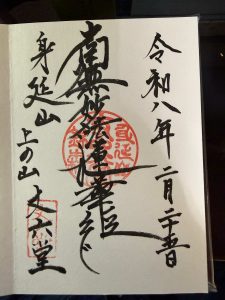 令和八年二月二十五日
南無妙法蓮華経
身延山 上の山 丈六堂